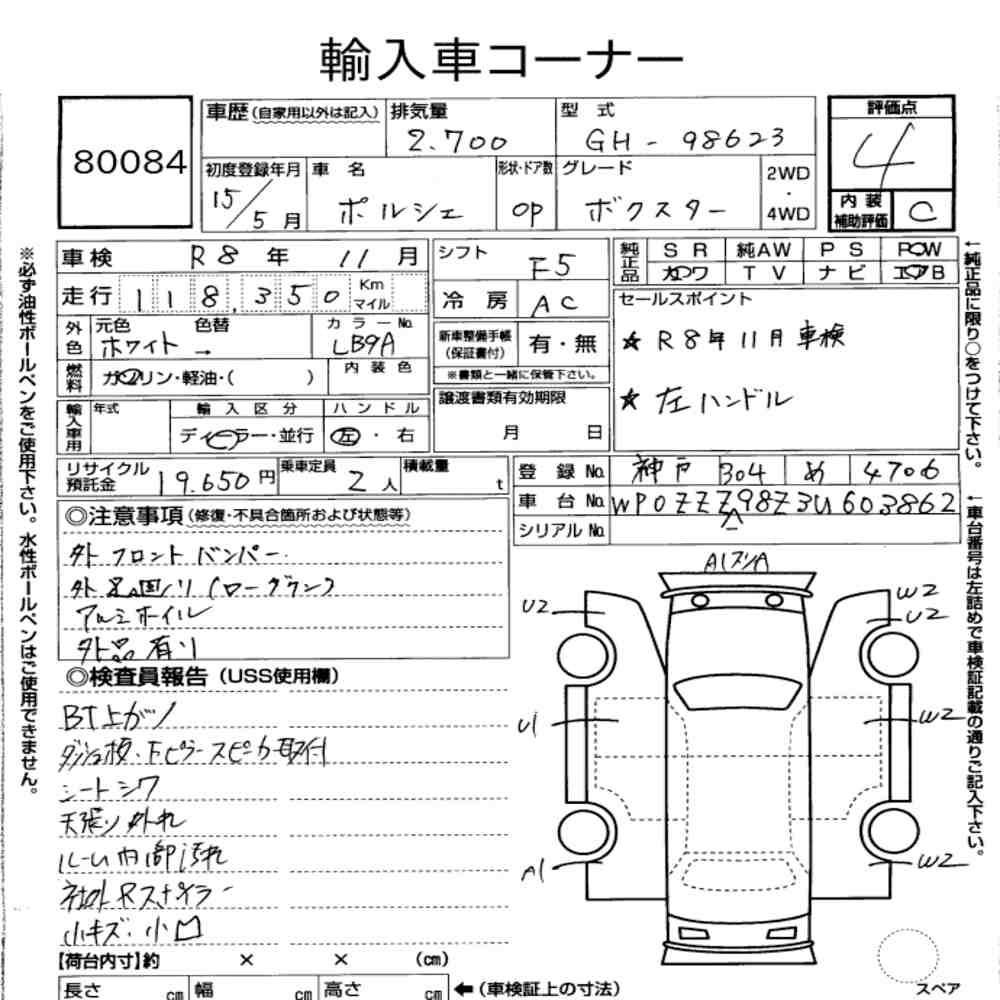 輸入車コーナー
80084
車歴(自家用以外は記入) 排気量 2.700 型式 GH-98623
初度登録年月 15/5月 車名 ポルシェ 形状・ドア数 OP グレード ボクスター 2WD・4WD
評価点 4
内装補助評価 C
車検 R8年 11月
走行 118,350 Km マイル
外色 元色 ホワイト 色替 → カラーNo. LB9A
燃料 ガソリン・軽油・( ) 内装色
輸入車用 年式 輸入区分 ディーラー・並行 ハンドル 左・右
シフト F5
冷房 AC
新車整備手帳(保証書付) 有・無
※書類と一緒に保管下さい。
譲渡書類有効期限
月 日
純正品 SR 純AW PS PW
カワ TV ナビ エアB
セールスポイント
★ R8年11月車検
★ 左ハンドル
リサイクル預託金 19.650円 乗車定員 2人 積載量 t
登録No. 神戸 304 め 4706
車台No. WP0ZZZ98Z3U603862
シリアルNo.
◎注意事項(修復・不具合箇所および状態等)
外 フロントバンパー
アルミホイル
外品有り
◎検査員報告(USS使用欄)
BT上がり
シートシワ
天張り外れ
ルーム内部汚れ
社外Rスポイラー
小キズ・小凹
【荷台内寸】約 × × (cm)
長さ cm 幅 cm 高さ cm ←(車検証上の寸法)
U2
W2
U2
U1
W2
A1
W2
スペア
※必ず油性ボールペンをご使用下さい。水性ボールペンはご使用できません。
←純正品に限り○をつけて下さい。
←車台番号は左詰めで車検証記載の通りご記入下さい。